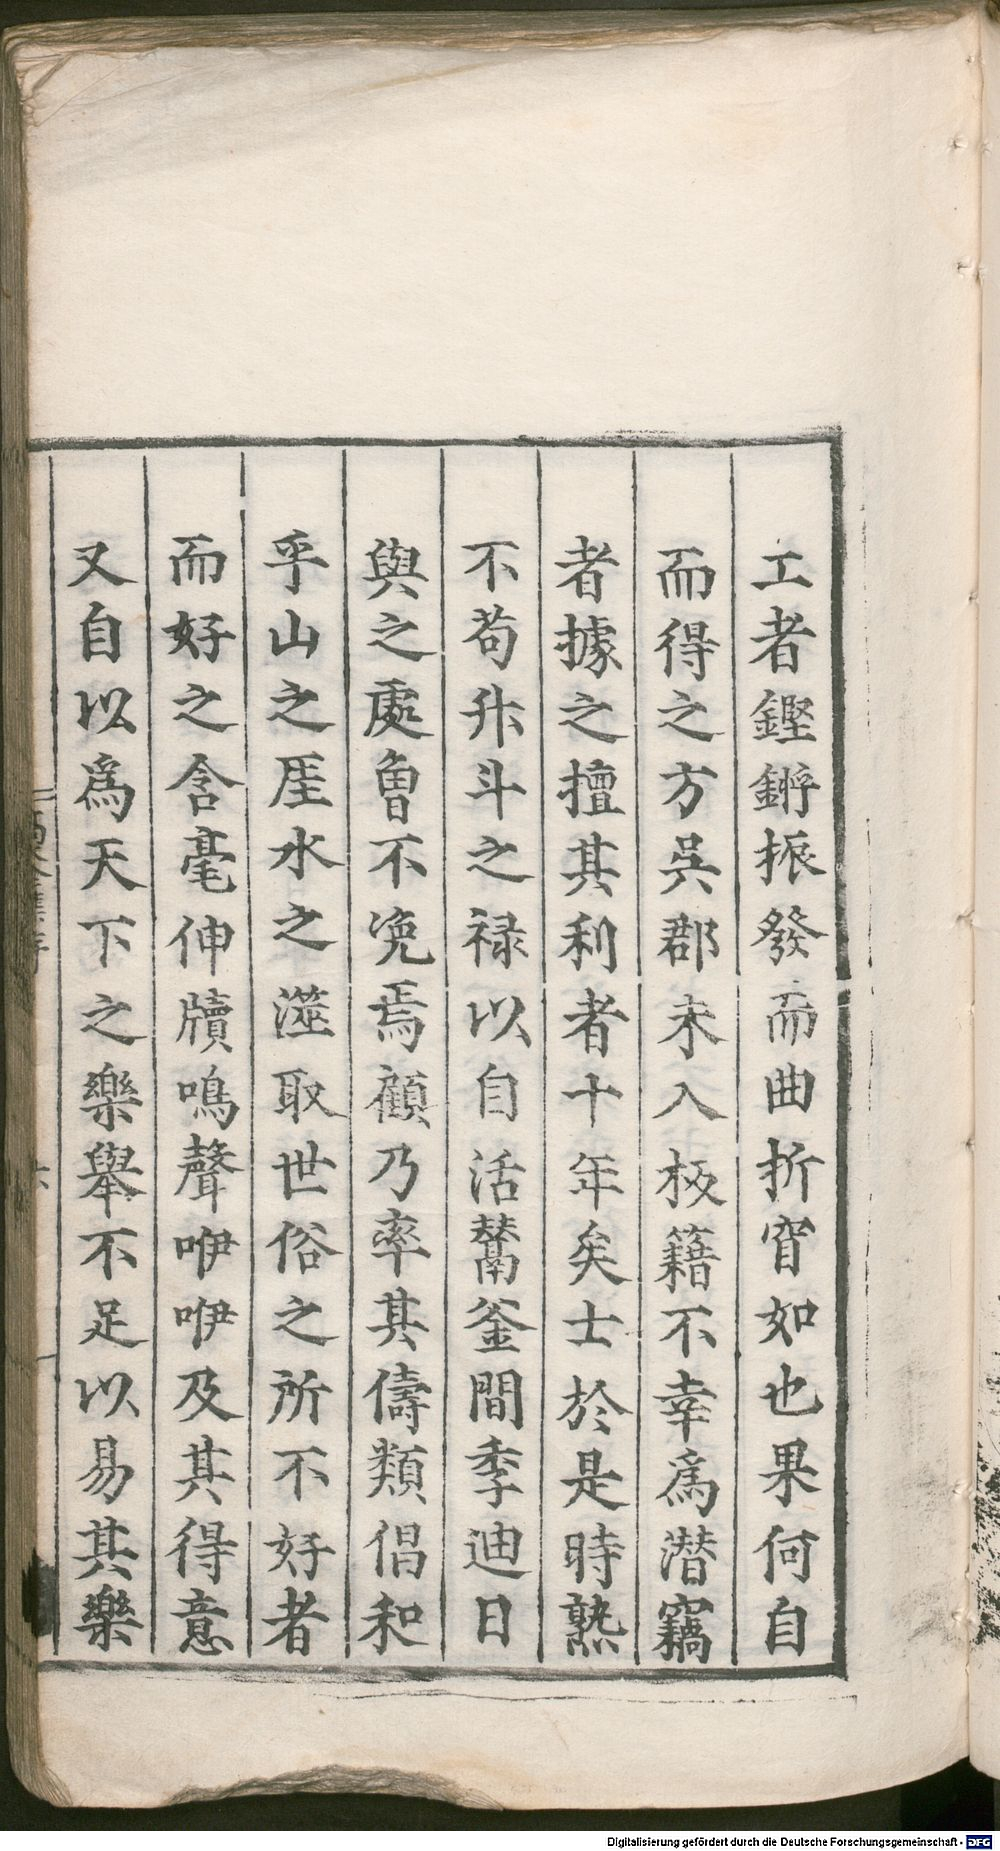 工者鏗鏘振發而曲折窅如也果何自
而得之方吳郡未入板籍不幸爲潛竊
者據之擅其利者十年矣士於是時熟
不苟升斗之禄以自活鬵釜間季迪日
與之處曽不凂焉顧乃率其儔類倡和
乎山之厓水之澨取世俗之所不好者
而好之含毫伸牘鳴聲咿咿及其得意
又自以爲天下之樂舉不足以易其樂
Digitalisierung gefördert durch die Deutsche Forschungsgemeinschaft - DFG